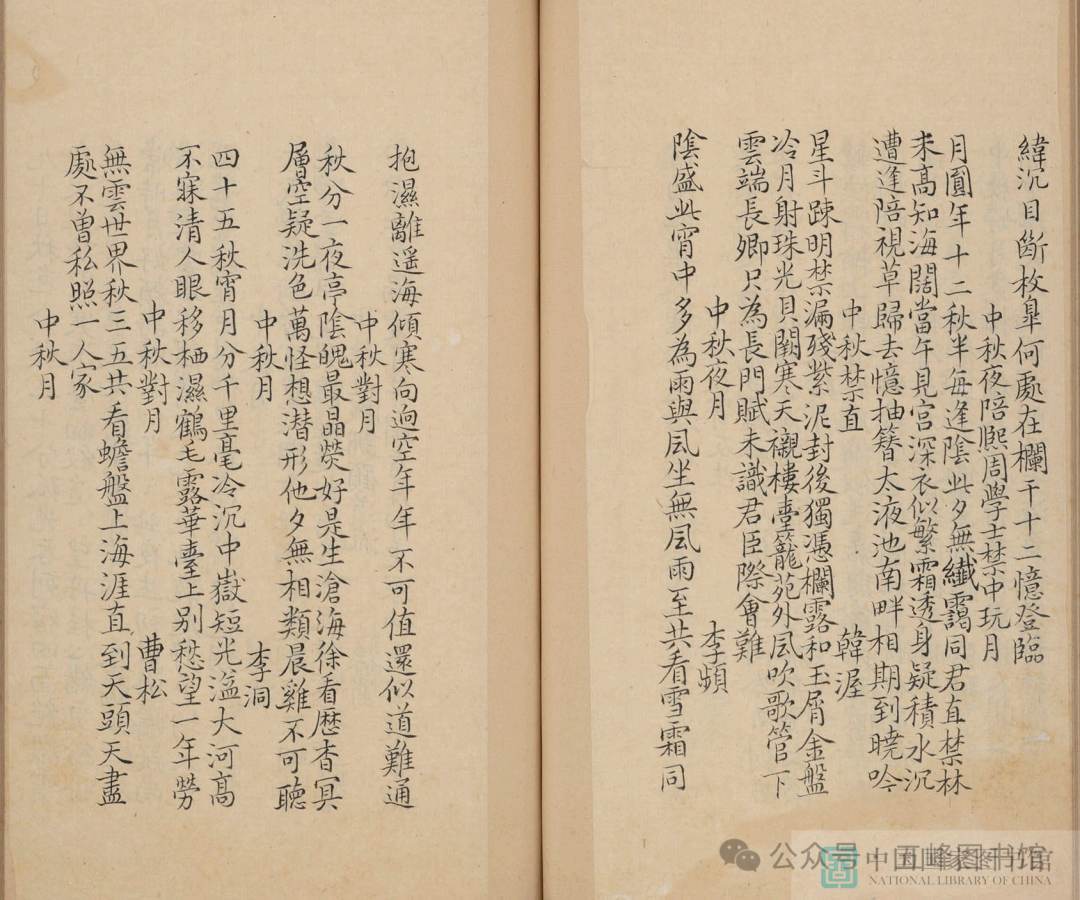 緯沉目斷枚臯何處在欄干十二憶登臨
中秋夜陪熈周學士禁中玩月
月圓年十二秋半每逢陰此夕無纎靄同君直禁林
未高知海闊當午見宮深衣似繁霜透身疑積水沉
遭逢陪視草歸去憶抽簪太液池南畔相期到曉吟
中秋禁直 韓渥
星斗踈明禁漏殘紫泥封後獨憑欄露和玉屑金盤
冷月射珠光貝闕寒天襯樓臺籠苑外風吹歌管下
雲端長卿只為長門賦未識君臣際會難
中秋夜月 李頻
陰盛此宵中多為雨與風坐無風雨至共看雪霜同
抱濕離遥海傾寒向逈空年年不可值還似道難通
中秋對月
秋分一夜亭陰魄最晶熒好是生滄海徐看歴杳冥
層空疑洗色萬怪想潜形他夕無相類晨雞不可聽
中秋月 李洞
四十五秋宵月分千里毫冷沉中嶽短光溢大河高
不寐清人眼移栖濕鶴毛露華臺上别愁望一年勞
中秋對月 曹松
無雲世界秋三五共看蟾盤上海涯直到天頭天盡
處不曾私照一人家
中秋月
公众号
NATIONAL LIBRARY OF CHINA